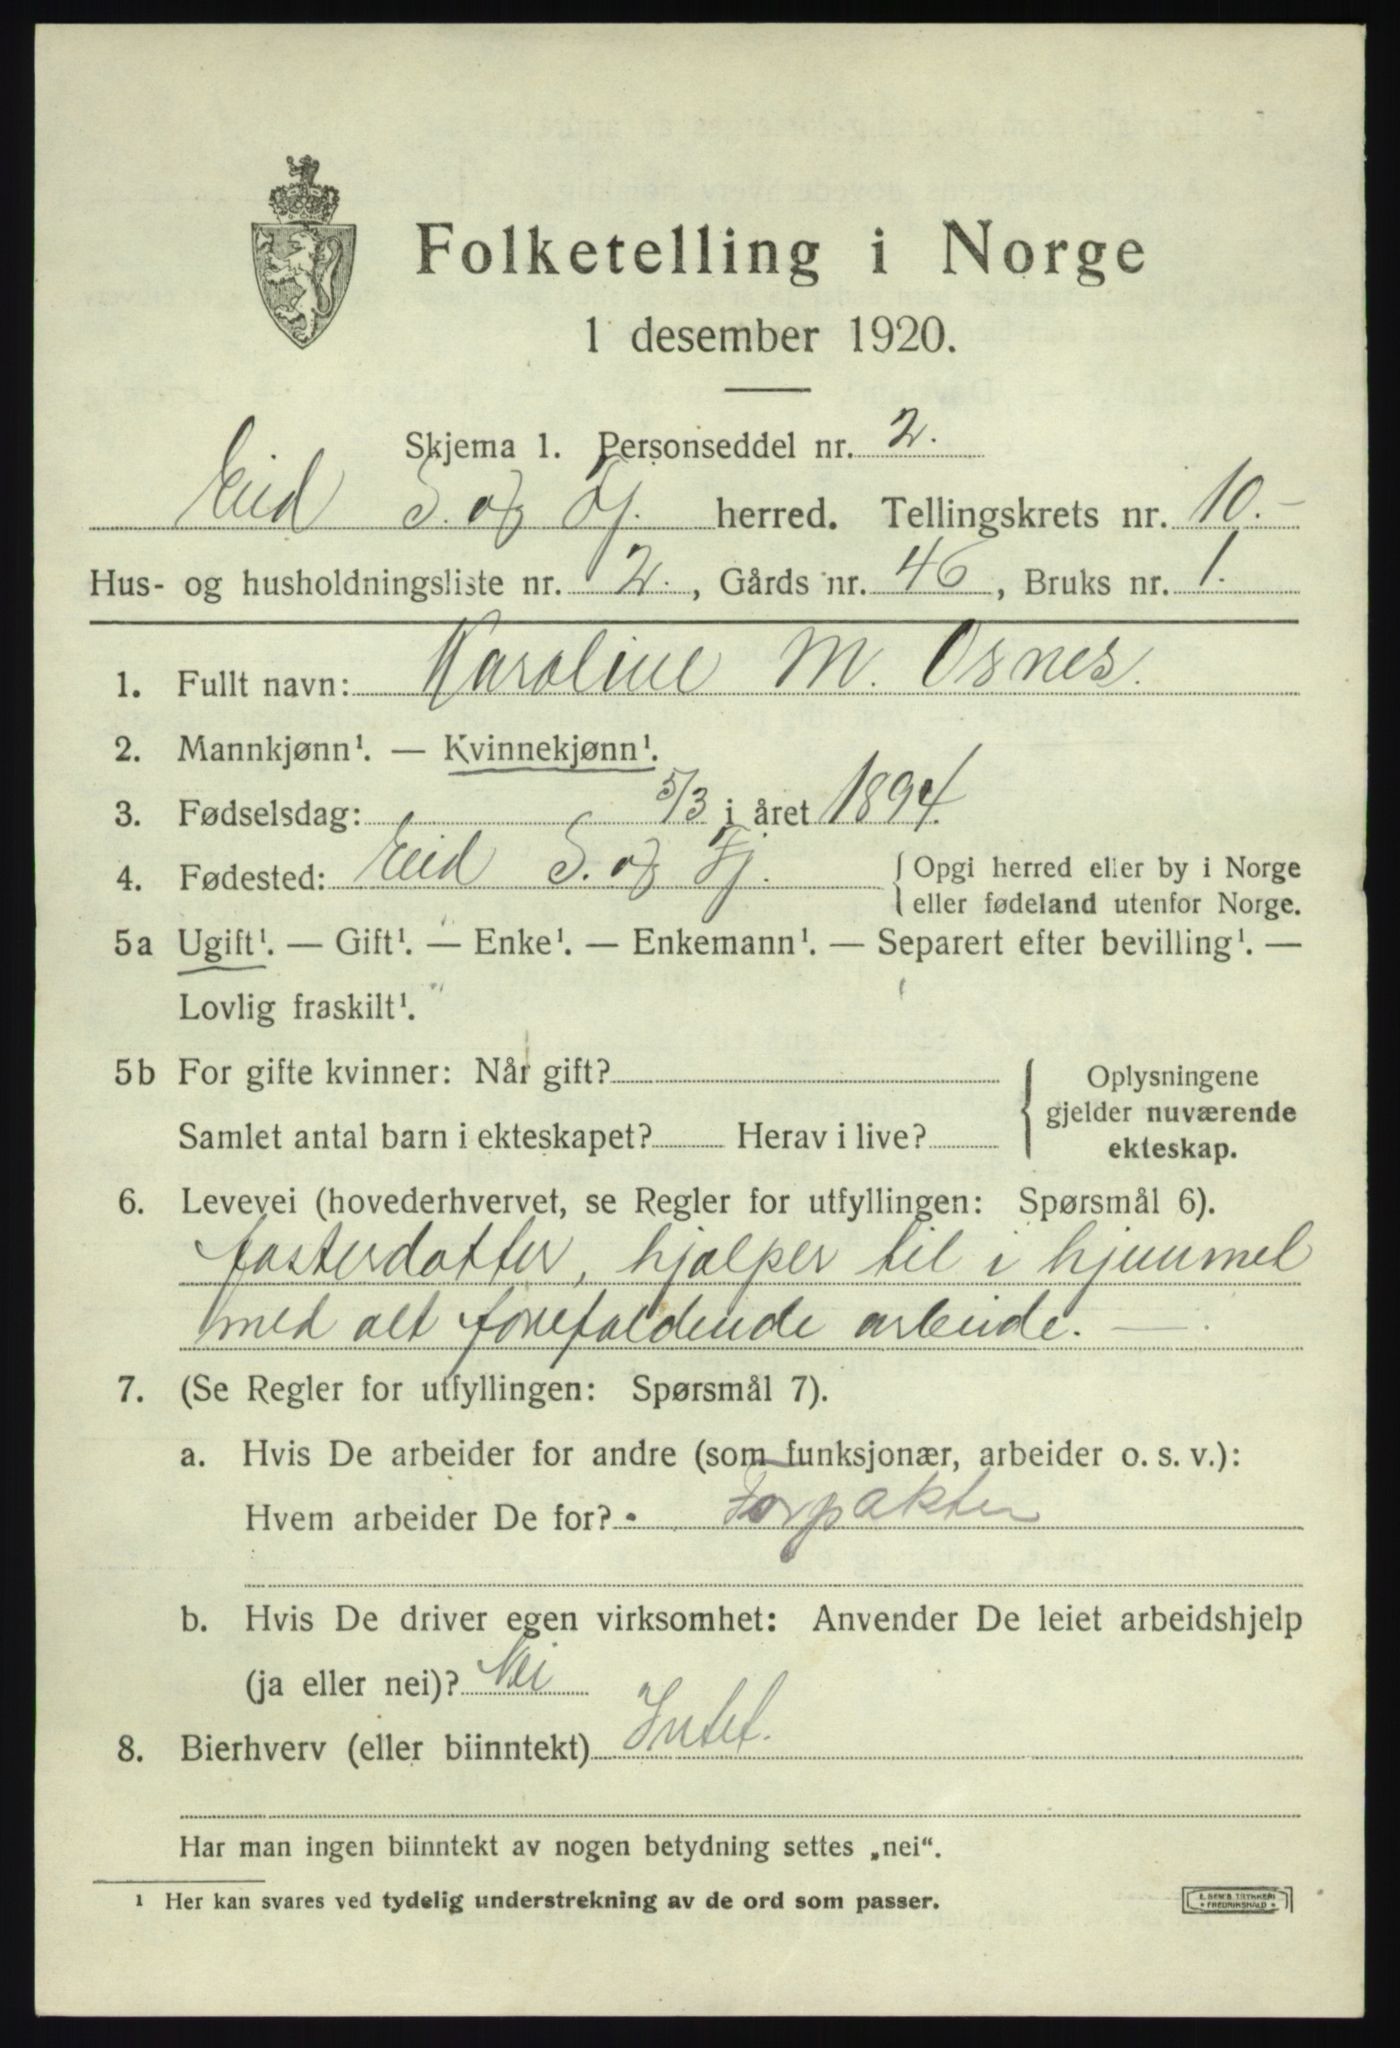 Folketelling i Norge
1 desember 1920.
Skjema 1. Personseddel nr. 2.
Eid S. og Fj. herred. Tellingskrets nr. 10.-
Hus- og husholdningsliste nr. 2., Gårds nr. 46, Bruks nr. 1.
1. Fullt navn: Karoline M. Osnes.
2. Mannkjønn¹. — Kvinnekjønn¹.
3. Fødselsdag: 5/3 i året 1894.
4. Fødested: Eid S. og Fj. { Opgi herred eller by i Norge
eller fødeland utenfor Norge.
5a Ugift¹. — Gift¹. — Enke¹. — Enkemann¹. — Separert efter bevilling¹. —
Lovlig fraskilt¹.
5b For gifte kvinner: Når gift?
Samlet antal barn i ekteskapet? Herav i live?
Oplysningene
gjelder nuværende
ekteskap.
6. Levevei (hovederhvervet, se Regler for utfyllingen: Spørsmål 6).
fosterdotter, hjælper til i hjemmet
med alt forefaldende arbeide. —.
7. (Se Regler for utfyllingen: Spørsmål 7).
a. Hvis De arbeider for andre (som funksjonær, arbeider o. s. v.):
Hvem arbeider De for? Forpakter
b. Hvis De driver egen virksomhet: Anvender De leiet arbeidshjelp
(ja eller nei)? Nei
8. Bierhverv (eller biinntekt) Intet.
Har man ingen biinntekt av nogen betydning settes „nei“.
¹ Her kan svares ved tydelig understrekning av de ord som passer.
E. SEM'S TRYKKERI
* FREDRIKSHALD *